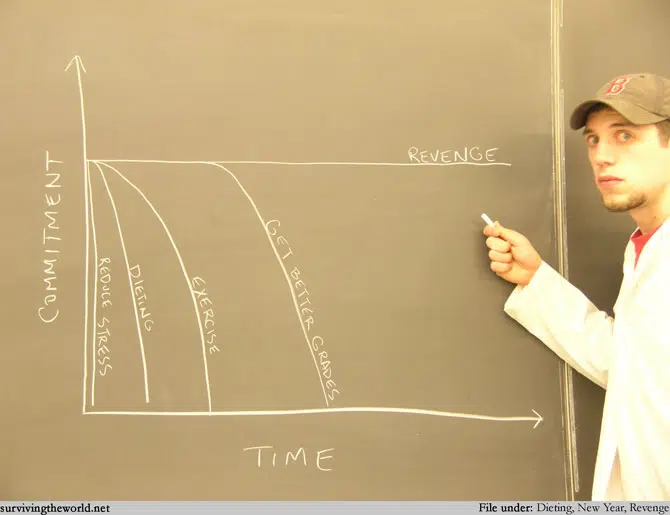 REVENGE
COMMITMENT
REDUCE STRESS
DIETING
EXERCISE
GET BETTER GRADES
TIME
B
survivingtheworld.net
File under: Dieting, New Year, Revenge